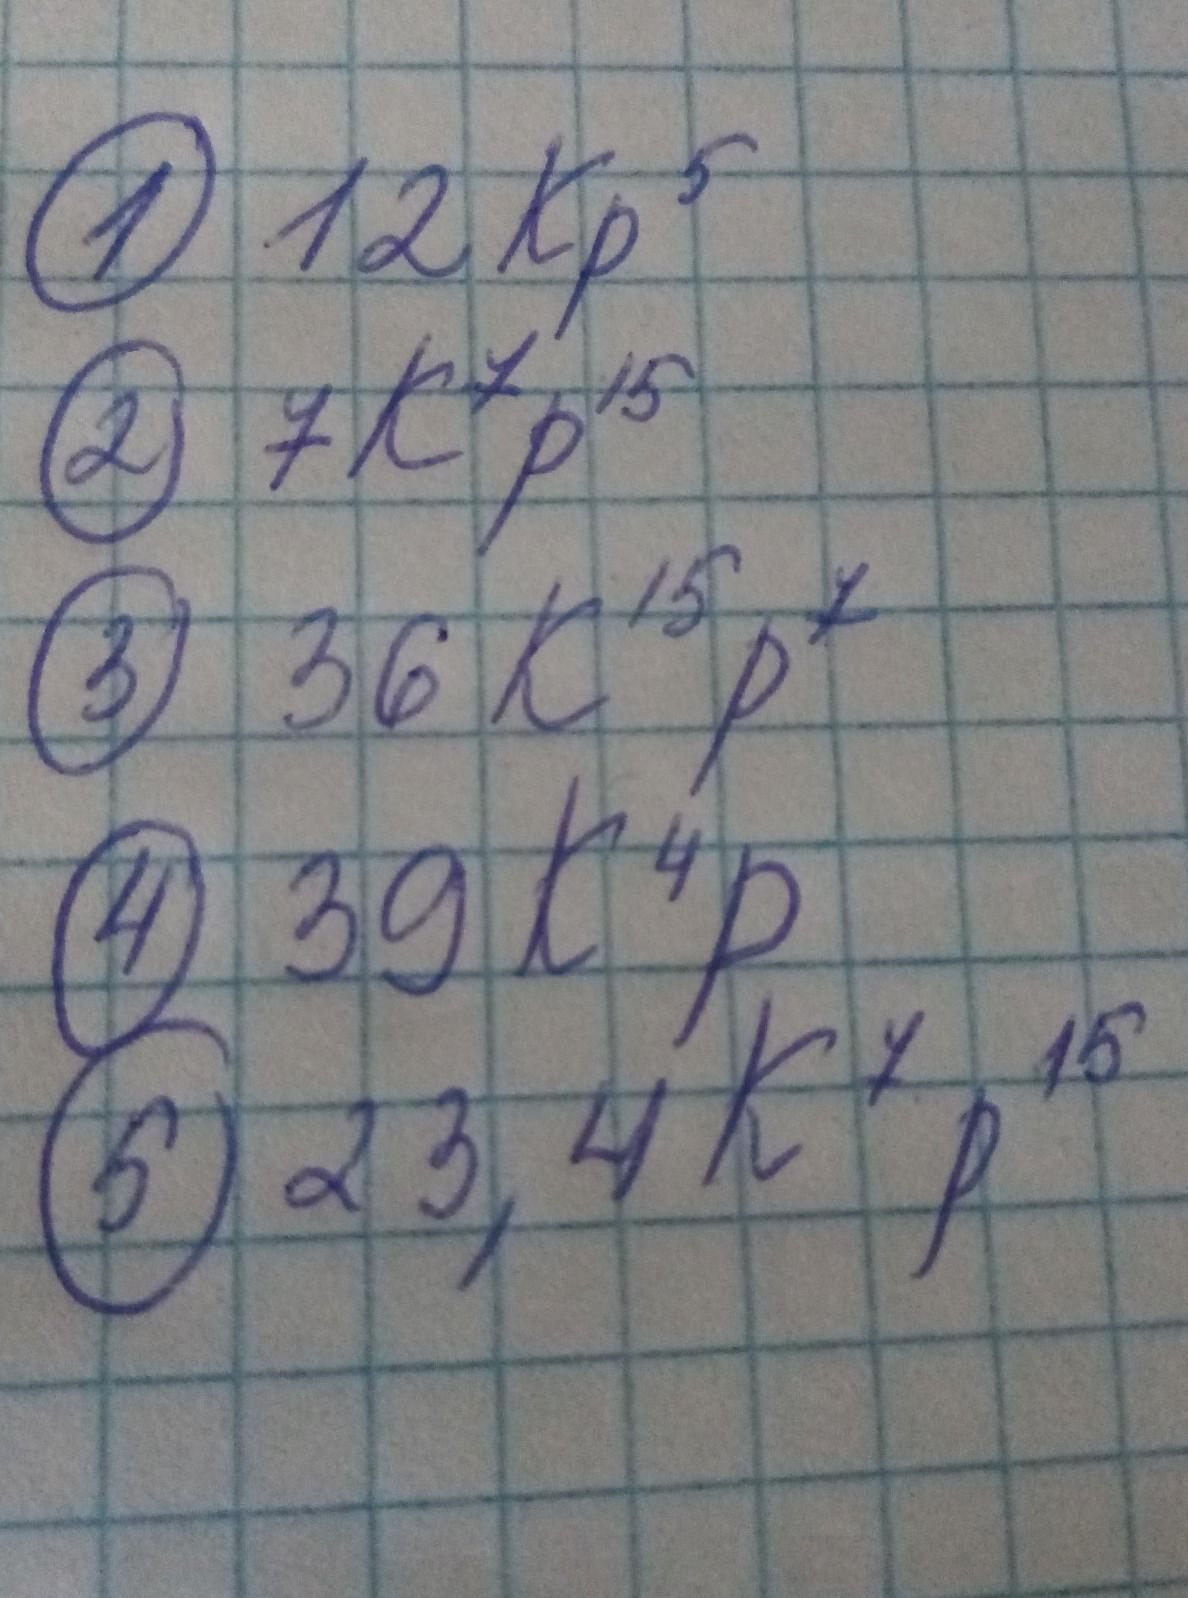 ① 12Kp⁵
② 7K⁷p¹⁵
③ 36K¹⁵p⁷
④ 39K⁴p
⑤ 23,4K⁷p¹⁵